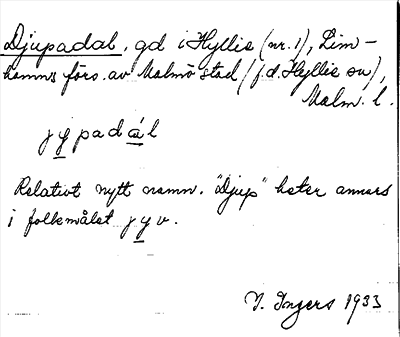 Djupadal, gd i Hyllie (nr. 1), Lim-
hamns förs. av Malmö stad (f.d. Hyllie sn),
Malm. l.
jypadál
Relativt nytt namn. "Djup" heter annars
i folkmålet jyv.
I. Ingers 1933